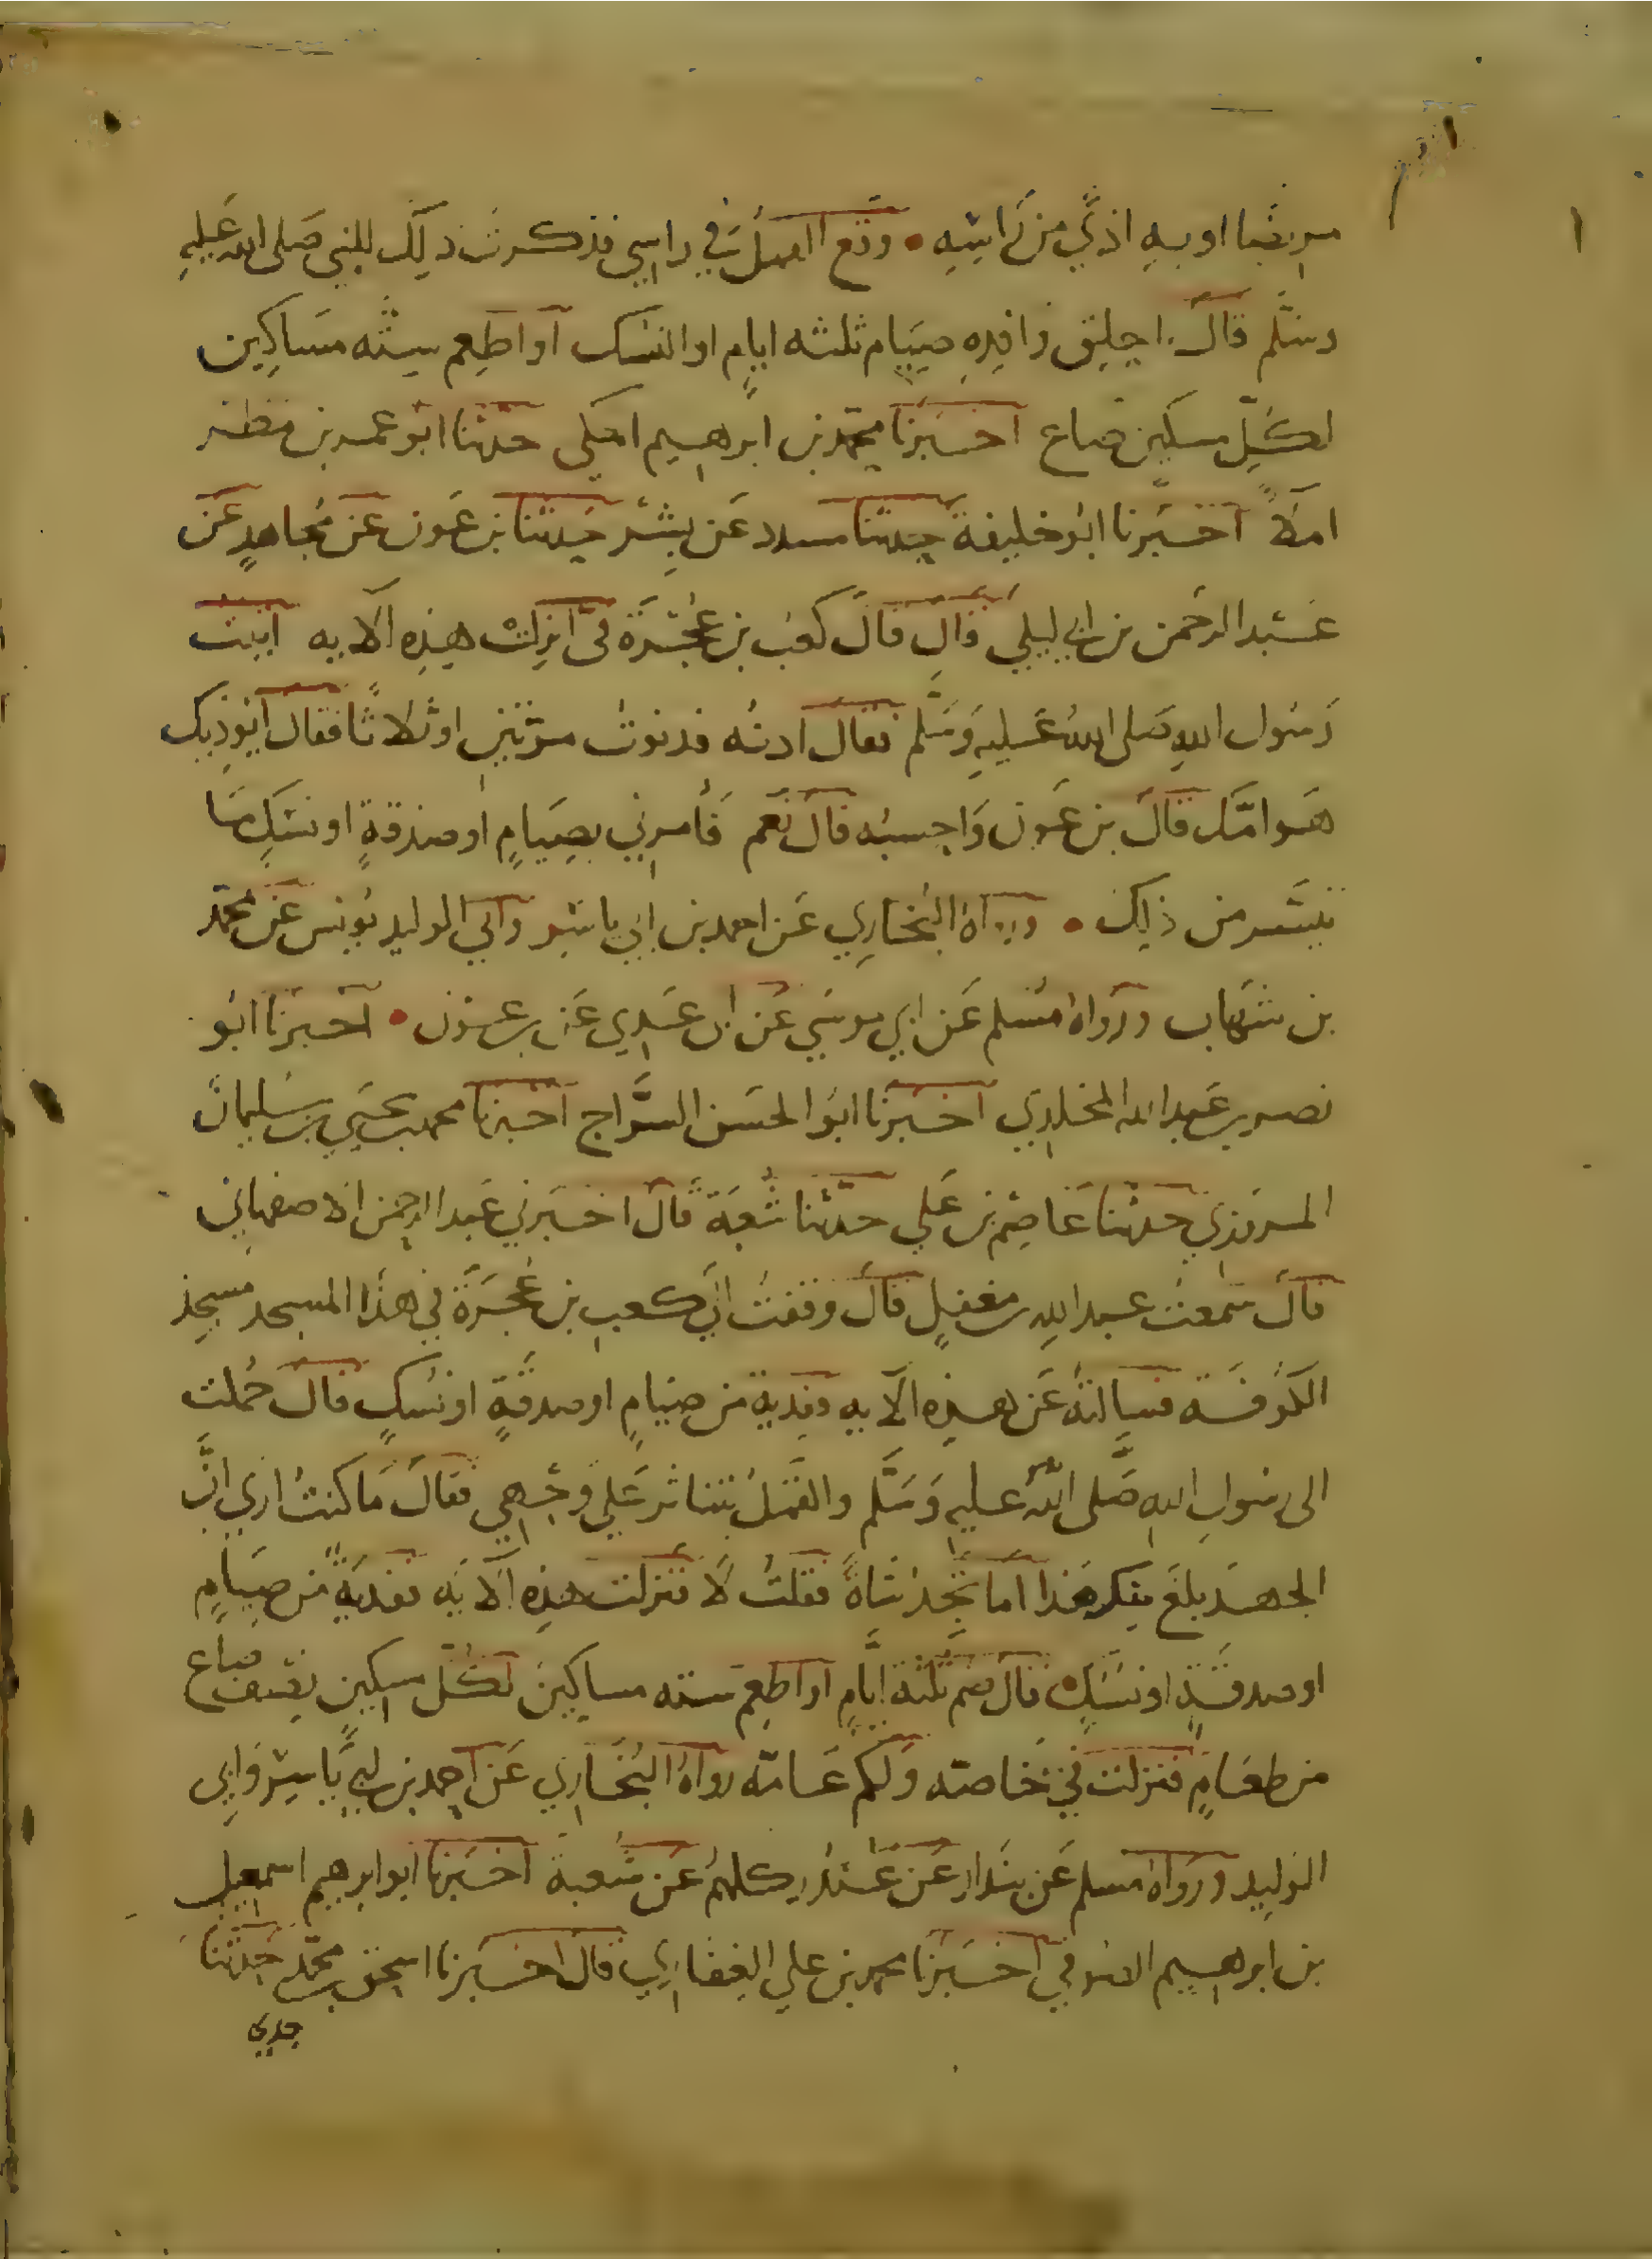 مريضا او به اذي من راسه • وقع القمل في راسي فذكرت ذلك للنبي صلى الله عليه
وسلم قال احلق وافده صيام ثلثه ايام او النسك او اطعم سته مساكين
لكل مسكين صاع اخبرنا محمد بن ابرهيم المكي حدثنا ابو عمر بن مطر
املاً اخبرنا ابو خليفة حدثنا مسدد عن بشر حدثنا بن عون عن مجاهد عن
عبد الرحمن بن ابي ليلي قال قال كعب بن عجرة في انزلت هذه الايه اتيت
رسول الله صلى الله عليه وسلم فقال ادنه فدنوت مرتين او ثلاثا فقال ايوذيك
هوامك قال بن عون واحسبه قال نعم فأمرني بصيام او صدقة او نسك ما
تيسر من ذلك • ورواه البخاري عن احمد بن ابي ياسر وابي الوليد يونس عن محمد
بن شهاب ورواه مسلم عن ابي موسي عن ابن عدي عن بن عون • اخبرنا ابو
نصر بن عبد الله المخلدي اخبرنا ابو الحسن السراج اخبرنا محمد بن يحيي بن سليمان
المروزي حدثنا عاصم بن علي حدثنا شعبة قال اخبرني عبد الرحمن الاصفهاني
قال سمعت عبد الله بن مغفل قال وقفت الي كعب بن عجرة في هذا المسجد مسجد
الكوفه فسالته عن هذه الايه ففدية من صيام او صدقة او نسك قال حملت
الى رسول الله صلى الله عليه وسلم والقمل يتناثر علي وجهي فقال ما كنت اري ان
الجهد بلغ بك هذا اما تجد شاة فقلت لا فنزلت هذه الايه ففدية من صيام
او صدقة او نسك قال صم ثلثة ايام او اطعم سته مساكين لكل مسكين نصف صاع
من طعام فنزلت في خاصته ولكم عامته رواه البخاري عن احمد بن ابي ياسر وابي
الوليد ورواه مسلم عن بندار عن غندر كلهم عن شعبة اخبرنا ابو ابرهيم اسمعيل
بن ابرهيم الصوفي اخبرنا محمد بن علي الغفاري قال اخبرنا اسحق بن محمد حدثنا
جدي